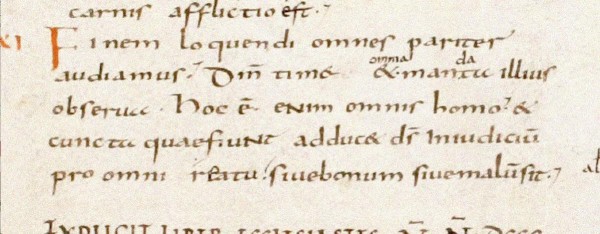 carnis afflictio est.
XI Finem loquendi omnes pariter
audiamus. Dm̄ time & mandata omnia illius
observa. Hoc ē enim omnis homo. &
cuncta quae fiunt adduc& ds̄ In iudiciū
pro omni reatu. sive bonum sive malū sit.
EXPLICIT LIBER